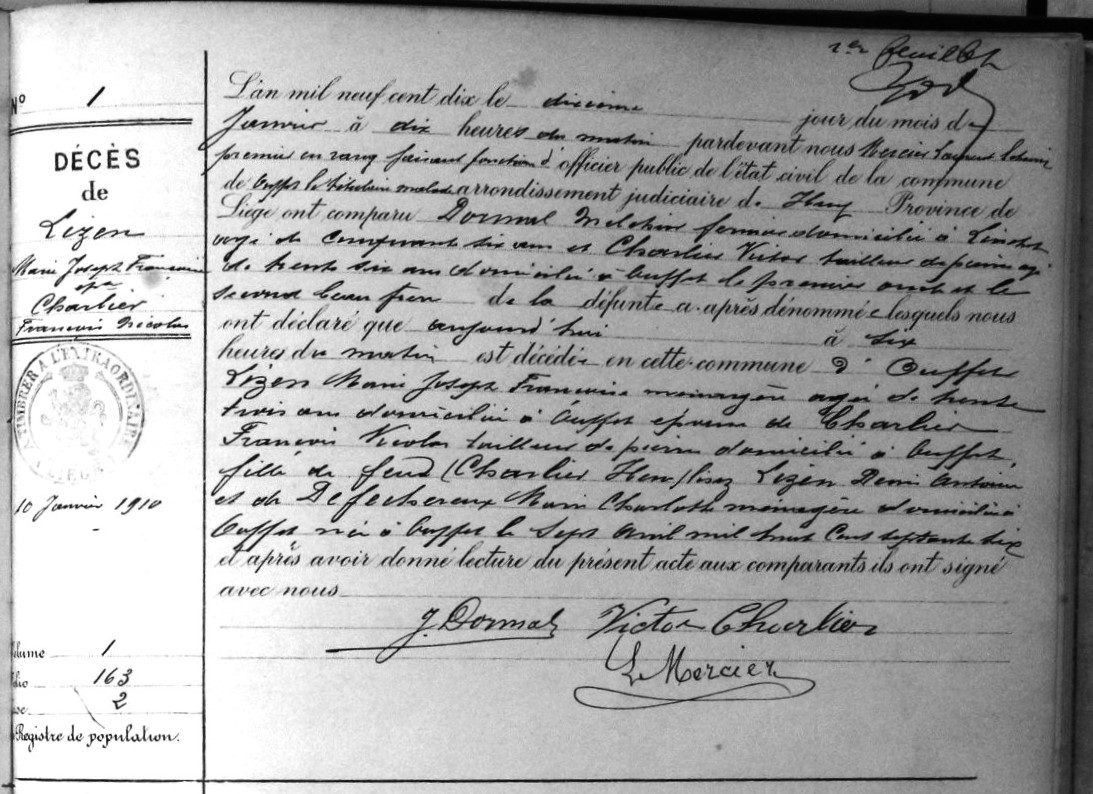 1er feuillet
No 1
DÉCÈS
de
Lizen
Marie Joseph Françoise
epse
Charlier
François Nicolas
TIMBRER À L'EXTRAORDINAIRE
LIEGE
10 Janvier 1910
Volume 1
Folio 163
2
Registre de population.
L'an mil neuf cent dix le dixieme jour du mois de
Janvier à dix heures du matin pardevant nous Mercier Laurent Echevin
premier en rang faisant fonction d'officier public de l'état civil de la commune
de Ouffet le titulaire malade arrondissement judiciaire de Huy Province de
Liége ont comparu Dormal Melchior fermier domicilié à Linchet
agé de cinquante six ans et Charlier Victor tailleur de pierres agé
de trente six ans domicilié à Ouffet le premier ami et le
second beau frère de la défunte ci-après dénommée lesquels nous
ont déclaré que aujourd'hui à six
heures du matin est décédée en cette commune d' Ouffet
Lizen Marie Joseph Françoise ménagère agée de trente
trois ans domiciliée à Ouffet epouse de Charlier
François Nicolas tailleur de pierres domicilié à Ouffet,
fille de feus (Charlier Hen) lisez Lizen Remi Antoine
et de Defechereux Marie Charlotte ménagère domiciliée à
Ouffet née à Ouffet le sept avril mil huit cent septante six
et après avoir donné lecture du présent acte aux comparants ils ont signé
avec nous
J. Dormal Victor Charlier
L. Mercier